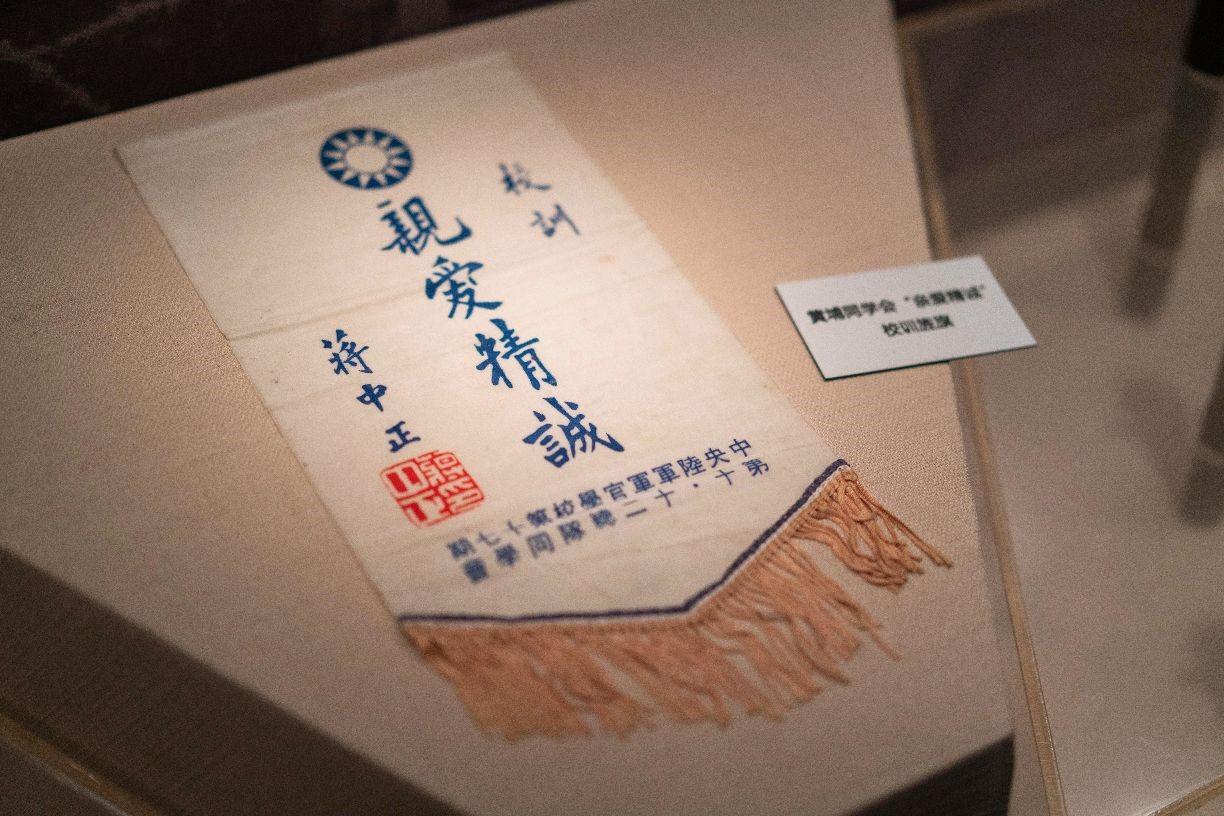 校訓
親愛精誠
蔣中正
中央陸軍軍官學校第十七期
第十·十二總隊同學會
黄埔同学会“亲爱精诚”
校训旌旗